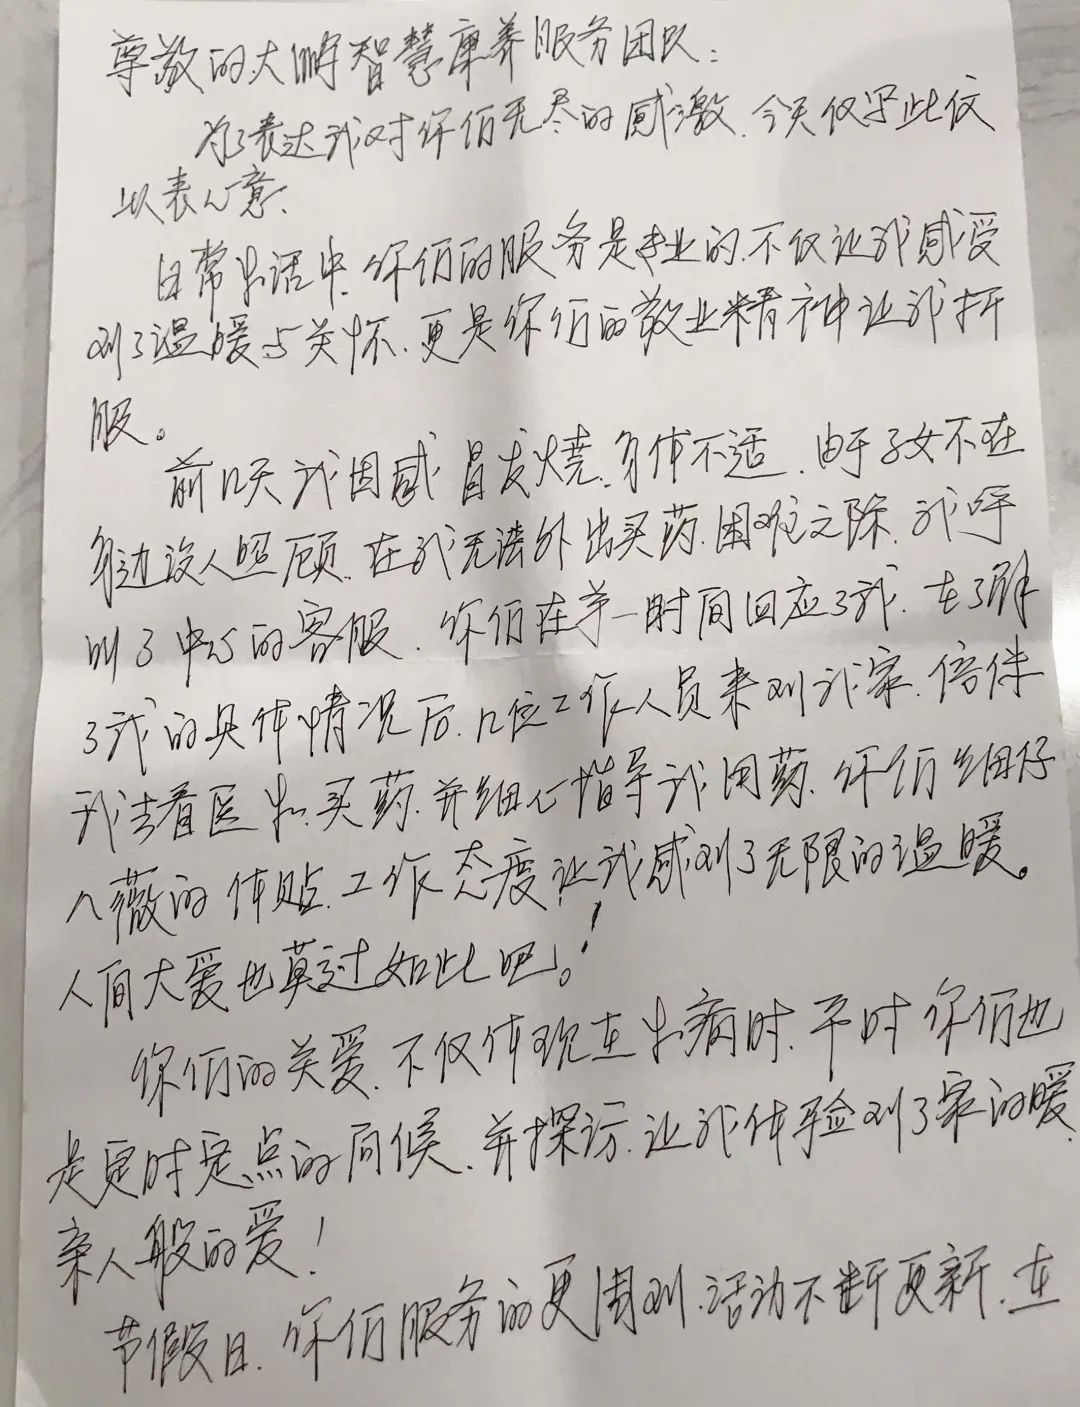 尊敬的大鹏智慧康养服务团队:
为了表达我对你们无尽的感激、今天仅呈此仪
以表心意、
日常生活中、你们的服务是专业的、不仅让我感受
到了温暖与关怀、更是你们的敬业精神让我折
服。
前几天我因感冒发烧、身体不适、由于子女不在
身边没人照顾、在我无法外出买药、困难之际、我呼
叫了中心的客服、你们在第一时间回应了我、在了解
了我的具体情况后、几位工作人员来到我家、倍伴
我去看医生、买药、并细心指导我用药、你们细仔
入薇的体贴、工作态度、让我感到了无限的温暖。
人间大爱也莫过如此吧。!
你们的关爱、不仅体现在生病时、平时你们也
是定时定点的问候、并探访、让我体验到了家的暖、
亲人般的爱!
节假日、你们服务的更周到、活动不断更新、在